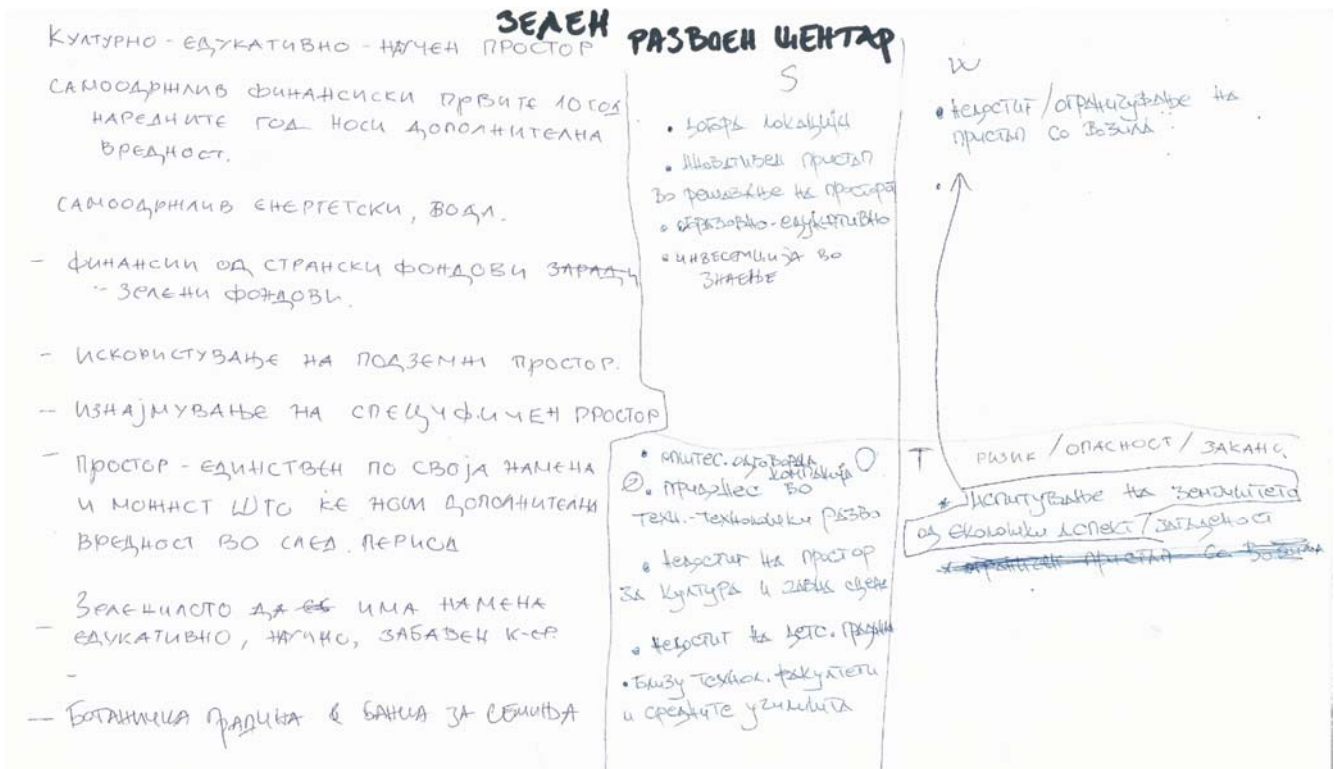 ЗЕЛЕН РАЗВОЕН ЦЕНТАР
КУЛТУРНО - ЕДУКАТИВНО - НАУЧЕН ПРОСТОР
САМООДРЖЛИВ ФИНАНСИСКИ ПРВИТЕ 10 ГОД
НАРЕДНИТЕ ГОД НОСИ ДОПОЛНИТЕЛНА
ВРЕДНОСТ.
САМООДРЖЛИВ ЕНЕРГЕТСКИ, ВОДА.
- ФИНАНСИИ ОД СТРАНСКИ ФОНДОВИ
- ЗЕЛЕНИ ФОНДОВИ.
- ИСКОРИСТУВАЊЕ НА ПОДЗЕМНИ ПРОСТОР.
- ИЗНАЈМУВАЊЕ НА СПЕЦИФИЧЕН ПРОСТОР
- ПРОСТОР - ЕДИНСТВЕН ПО СВОЈА НАМЕНА
И МОЖНСТ ШТО ЌЕ НОСИ ДОПОЛНИТЕЛНИ
ВРЕДНОСТ ВО СЛЕД. ПЕРИОД
- ЗЕЛЕНИЛОТО ДА ИМА НАМЕНА
ЕДУКАТИВНО, НАУЧНО, ЗАБАВЕН К-ЕР.
-
- БОТАНИЧКА ГРАДИНА & БАНКА ЗА СЕМИЊА
S
• ДОБРА ЛОКАЦИЈА
• ИНОВАТИВЕН ПРИСТАП
ВО РЕШАВАЊЕ НА ПРОСТОРОТ
• ОБРАЗОВНО-ЕДУКАТИВНО
• ИНВЕСТИЦИЈА ВО
ЗНАЕЊЕ
W
• НЕДОСТИГ/ОГРАНИЧУВАЊЕ НА
ПРИСТАП СО ВОЗИЛА
•
O
• ОПШТЕС. ОДГОВОРНА
КОМПАНИЈА
2. ПРИДОНЕС ВО
ТЕХН.-ТЕХНОЛОШКИ РАЗВО
• НЕДОСТИГ НА ПРОСТОР
ЗА КУЛТУРА И СЦЕНА
• НЕДОСТИГ НА ДЕТС. ГРАДИНКИ
• БЛИЗУ ТЕХНОЛ. ФАКУЛТЕТИ
И СРЕДНИТЕ УЧИЛИШТА
T РИЗИК / ОПАСНОСТ / ЗАКАНА
* ИСПИТУВАЊЕ НА ЗЕМЈИШТЕТО
ОД ЕКОЛОШКИ АСПЕКТ / ЗАГАДЕНОСТ
* ОГРАНИЧЕН ПРИСТАП СО ВОЗИЛА